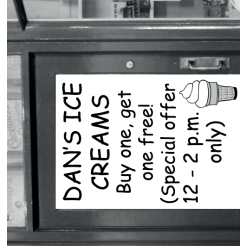 DAN'S ICE
CREAMS
Buy one, get
one free!
(Special offer
12 - 2 p.m.
only)